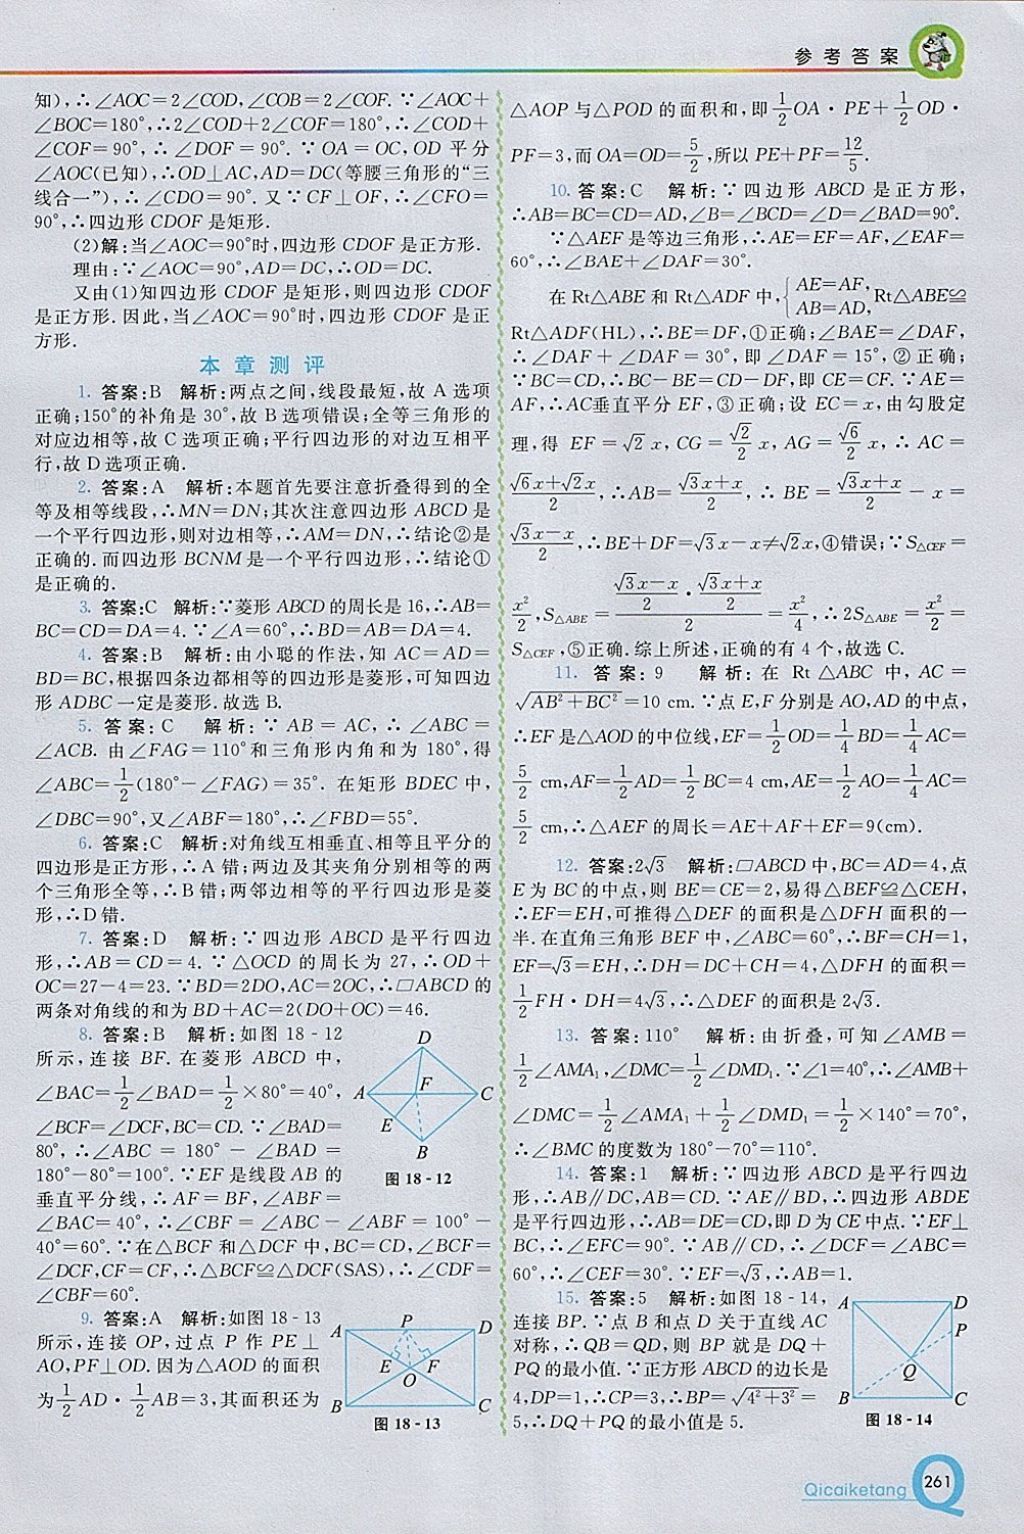 参考答案
知),∴∠AOC=2∠COD,∠COB=2∠COF.∵∠AOC+
∠BOC=180°,∴2∠COD+2∠COF=180°,∴∠COD+
∠COF=90°,∴∠DOF=90°.∵OA=OC,OD平分
∠AOC(已知),∴OD⊥AC,AD=DC(等腰三角形的“三
线合一”),∴∠CDO=90°.又∵CF⊥OF,∴∠CFO=
90°,∴四边形CDOF是矩形.
(2)解:当∠AOC=90°时,四边形CDOF是正方形.
理由:∵∠AOC=90°,AD=DC,∴OD=DC.
又由(1)知四边形CDOF是矩形,则四边形CDOF
是正方形.因此,当∠AOC=90°时,四边形CDOF是正
方形.
本章测评
1. 答案:B 解析:两点之间,线段最短,故A选项
正确;150°的补角是30°,故B选项错误;全等三角形的
对应边相等,故C选项正确;平行四边形的对边互相平
行,故D选项正确.
2. 答案:A 解析:本题首先要注意折叠得到的全
等及相等线段,∴MN=DN;其次注意四边形ABCD是
一个平行四边形,则对边相等,∴AM=DN,∴结论②是
正确的.而四边形BCNM是一个平行四边形,∴结论①
是正确的.
3. 答案:C 解析:∵菱形ABCD的周长是16,∴AB=
BC=CD=DA=4.∵∠A=60°,∴BD=AB=DA=4.
4. 答案:B 解析:由小聪的作法,知AC=AD=
BD=BC,根据四条边都相等的四边形是菱形,可知四边
形ADBC一定是菱形.故选B.
5. 答案:C 解析:∵AB=AC,∴∠ABC=
∠ACB.由∠FAG=110°和三角形内角和为180°,得
∠ABC=1/2(180°-∠FAG)=35°.在矩形BDEC中,
∠DBC=90°,又∠ABF=180°,∴∠FBD=55°.
6. 答案:C 解析:对角线互相垂直、相等且平分的
四边形是正方形,∴A错;两边及其夹角分别相等的两
个三角形全等,∴B错;两邻边相等的平行四边形是菱
形,∴D错.
7. 答案:D 解析:∵四边形ABCD是平行四边
形,∴AB=CD=4.∵△OCD的周长为27,∴OD+
OC=27-4=23.∵BD=2DO,AC=2OC,∴□ABCD的
两条对角线的和为BD+AC=2(DO+OC)=46.
8. 答案:B 解析:如图18-12
所示,连接BF.在菱形ABCD中,
∠BAC=1/2∠BAD=1/2×80°=40°,
∠BCF=∠DCF,BC=CD.∵∠BAD=
80°,∴∠ABC=180°-∠BAD=
180°-80°=100°.∵EF是线段AB的
垂直平分线,∴AF=BF,∠ABF=
∠BAC=40°,∴∠CBF=∠ABC-∠ABF=100°-
40°=60°.∵在△BCF和△DCF中,BC=CD,∠BCF=
∠DCF,CF=CF,∴△BCF≌△DCF(SAS),∴∠CDF=
∠CBF=60°.
D
A
F
C
E
B
图18-12
9. 答案:A 解析:如图18-13
所示,连接OP,过点P作PE⊥
AO,PF⊥OD.因为△AOD的面积
为1/2AD·1/2AB=3,其面积还为
A
P
D
E
F
O
B
C
图18-13
△AOP与△POD的面积和,即1/2OA·PE+1/2OD·
PF=3,而OA=OD=5/2,所以PE+PF=12/5.
10. 答案:C 解析:∵四边形ABCD是正方形,
∴AB=BC=CD=AD,∠B=∠BCD=∠D=∠BAD=90°.
∵△AEF是等边三角形,∴AE=EF=AF,∠EAF=
60°,∴∠BAE+∠DAF=30°.
在Rt△ABE和Rt△ADF中,{AE=AF, AB=AD,Rt△ABE≌
Rt△ADF(HL),∴BE=DF,①正确;∠BAE=∠DAF,
∴∠DAF+∠DAF=30°,即∠DAF=15°,②正确;
∵BC=CD,∴BC-BE=CD-DF,即CE=CF.∵AE=
AF,∴AC垂直平分EF,③正确;设EC=x,由勾股定
理,得EF=√2x,CG=√2/2x,AG=√6/2x,∴AC=
(√6x+√2x)/2,∴AB=(√3x+x)/2,∴BE=(√3x+x)/2-x=
(√3x-x)/2,∴BE+DF=√3x-x≠√2x,④错误;∵S△CEF=
x²/2,S△ABE=((√3x-x)/2·(√3x+x)/2)/2=x²/4,∴2S△ABE=x²/2=
S△CEF,⑤正确.综上所述,正确的有4个,故选C.
11. 答案:9 解析:在Rt△ABC中,AC=
√(AB²+BC²)=10 cm.∵点E,F分别是AO,AD的中点,
∴EF是△AOD的中位线,EF=1/2OD=1/4BD=1/4AC=
5/2 cm,AF=1/2AD=1/2BC=4 cm,AE=1/2AO=1/4AC=
5/2 cm,∴△AEF的周长=AE+AF+EF=9(cm).
12. 答案:2√3 解析:□ABCD中,BC=AD=4,点
E为BC的中点,则BE=CE=2,易得△BEF≌△CEH,
∴EF=EH,可推得△DEF的面积是△DFH面积的一
半.在直角三角形BEF中,∠ABC=60°,∴BF=CH=1,
EF=√3=EH,∴DH=DC+CH=4,△DFH的面积=
1/2FH·DH=4√3,∴△DEF的面积是2√3.
13. 答案:110° 解析:由折叠,可知∠AMB=
1/2∠AMA₁,∠DMC=1/2∠DMD₁.∵∠1=40°,∴∠AMB+
∠DMC=1/2∠AMA₁+1/2∠DMD₁=1/2×140°=70°,
∴∠BMC的度数为180°-70°=110°.
14. 答案:1 解析:∵四边形ABCD是平行四边
形,∴AB∥DC,AB=CD.∵AE∥BD,∴四边形ABDE
是平行四边形,∴AB=DE=CD,即D为CE中点.∵EF⊥
BC,∴∠EFC=90°.∵AB∥CD,∴∠DCF=∠ABC=
60°,∴∠CEF=30°.∵EF=√3,∴AB=1.
15. 答案:5 解析:如图18-14,
连接BP.∵点B和点D关于直线AC
对称,∴QB=QD,则BP就是DQ+
PQ的最小值.∵正方形ABCD的边长是
4,DP=1,∴CP=3,∴BP=√(4²+3²)=
5,∴DQ+PQ的最小值是5.
A
D
P
Q
B
C
图18-14
Qicaiketang
261